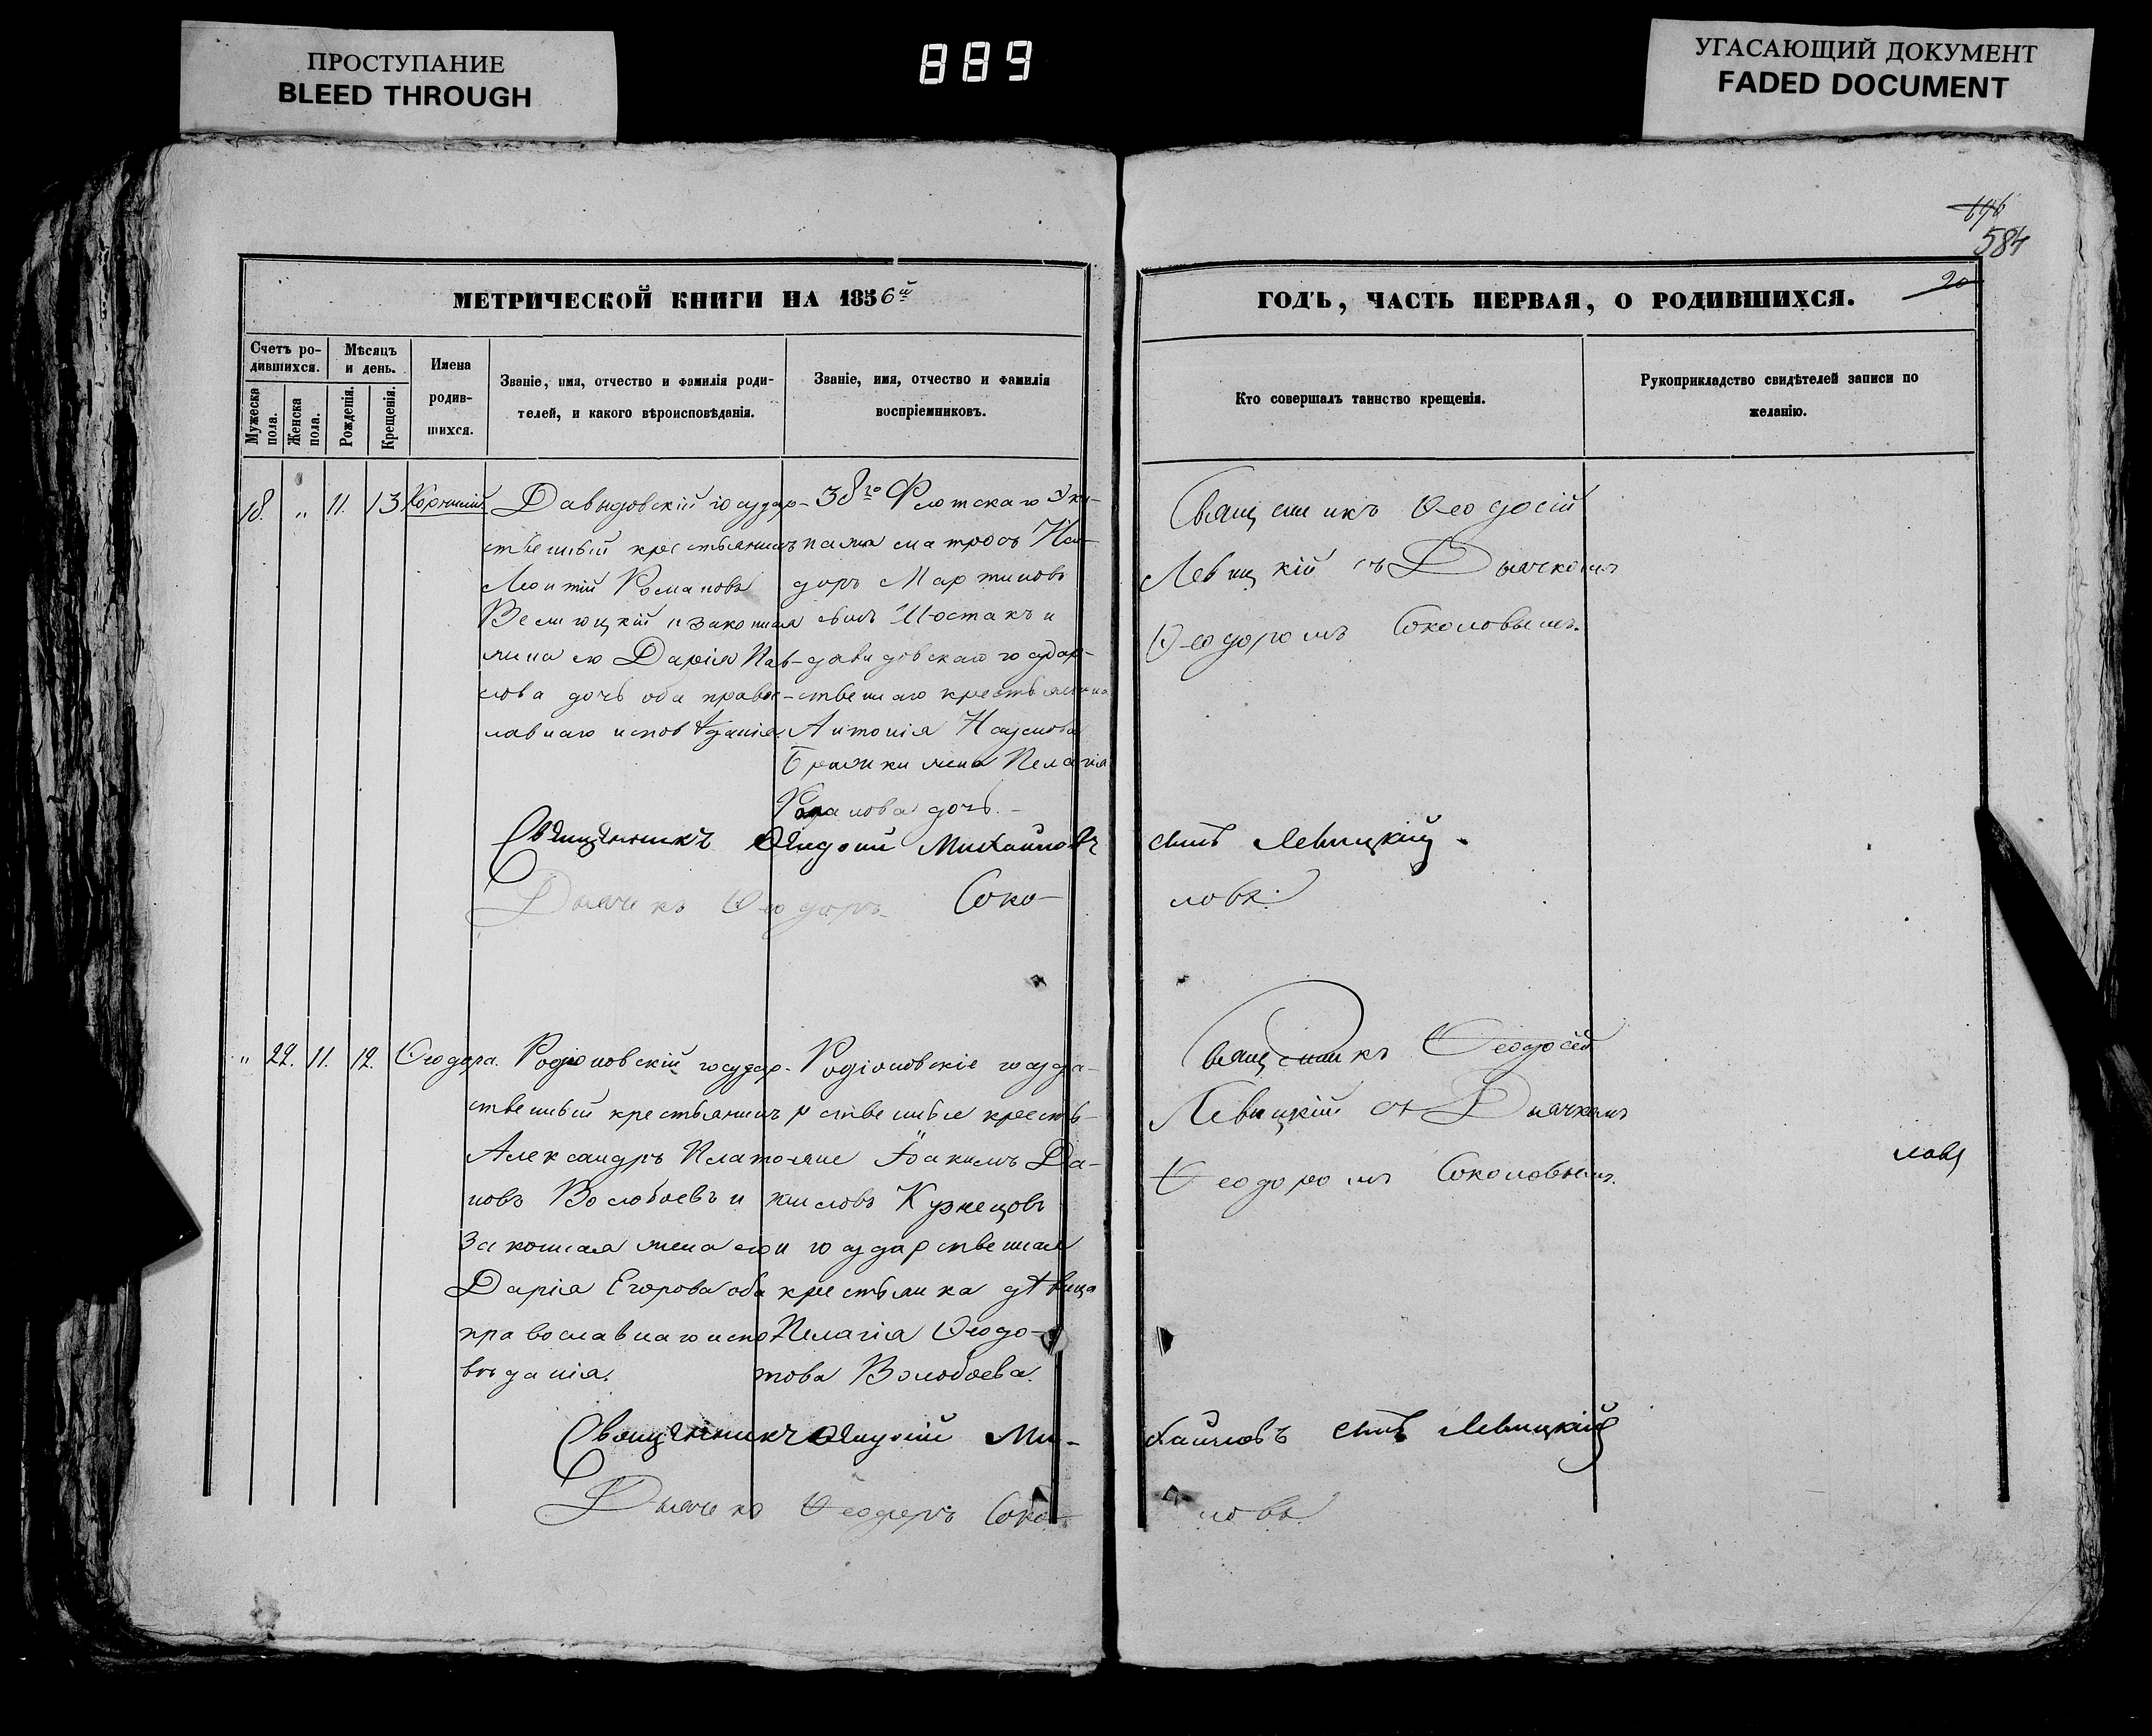 ПРОСТУПАНИЕ
BLEED THROUGH
889
УГАСАЮЩИЙ ДОКУМЕНТ
FADED DOCUMENT
584
20
МЕТРИЧЕСКОЙ КНИГИ НА 1856й
ГОДЪ, ЧАСТЬ ПЕРВАЯ, О РОДИВШИХСЯ.
Счетъ ро-
дившихся.
Мужеска
пола.
Женска
пола.
Мѣсяцъ
и день.
Рожденія.
Крещенія.
Имена
родив-
шихся.
Званіе, имя, отчество и фамилія роди-
телей, и какого вѣроисповѣданія.
Званіе, имя, отчество и фамилія
воспріемниковъ.
Кто совершалъ таинство крещенія.
Рукоприкладство свидѣтелей записи по
желанію.
18. " 11. 13
Давыдовскій государ-
ственный крестьянинъ
Леонтій Романовъ
и законная
жена его Дарія Пав-
лова дочь оба правос-
лавнаго исповѣданія.
38го Флотскаго Эки-
пажа матросъ
доръ Мартиновъ
сынъ Шостакъ и
давидовскаго государ-
ственнаго крестьянина
Антонія Наумова
жена Пелагія
дочь.
Священникъ Ѳеодосій
Левицкій съ Дьячкомъ
Ѳеодоромъ Соколовымъ.
Священникъ Ѳеодосій Михайловъ сынъ Левицкій.
Дьячекъ Ѳеодоръ Соко-ловъ.
" 22. 11. 12. Ѳеодора.
Родіоновскій государ-
ственный крестьянинъ
Александръ Плато-
новъ Волобоевъ и
законная жена его
Дарія Егорова оба
православнаго испо
вѣданія.
Родіоновскіе государ-
ственные кресть-
яне Іоакимъ Да-
ниловъ Кузнецовъ
и государственная
крестьянка дѣвица
Пелагія Ѳеодо-
това Волобоева.
Священникъ Ѳеодосій
Левицкій съ Дьячкомъ
Ѳеодоромъ Соколовымъ.
ловъ
Священникъ Ѳеодосій Ми-хайловъ сынъ Левицкій
Дьячекъ Ѳеодоръ Соко-ловъ